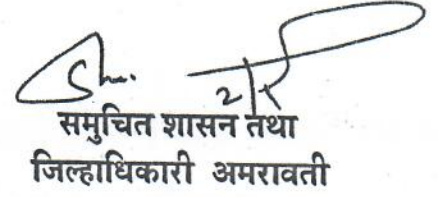 2/1
समुचित शासन तथा
जिल्हाधिकारी अमरावती